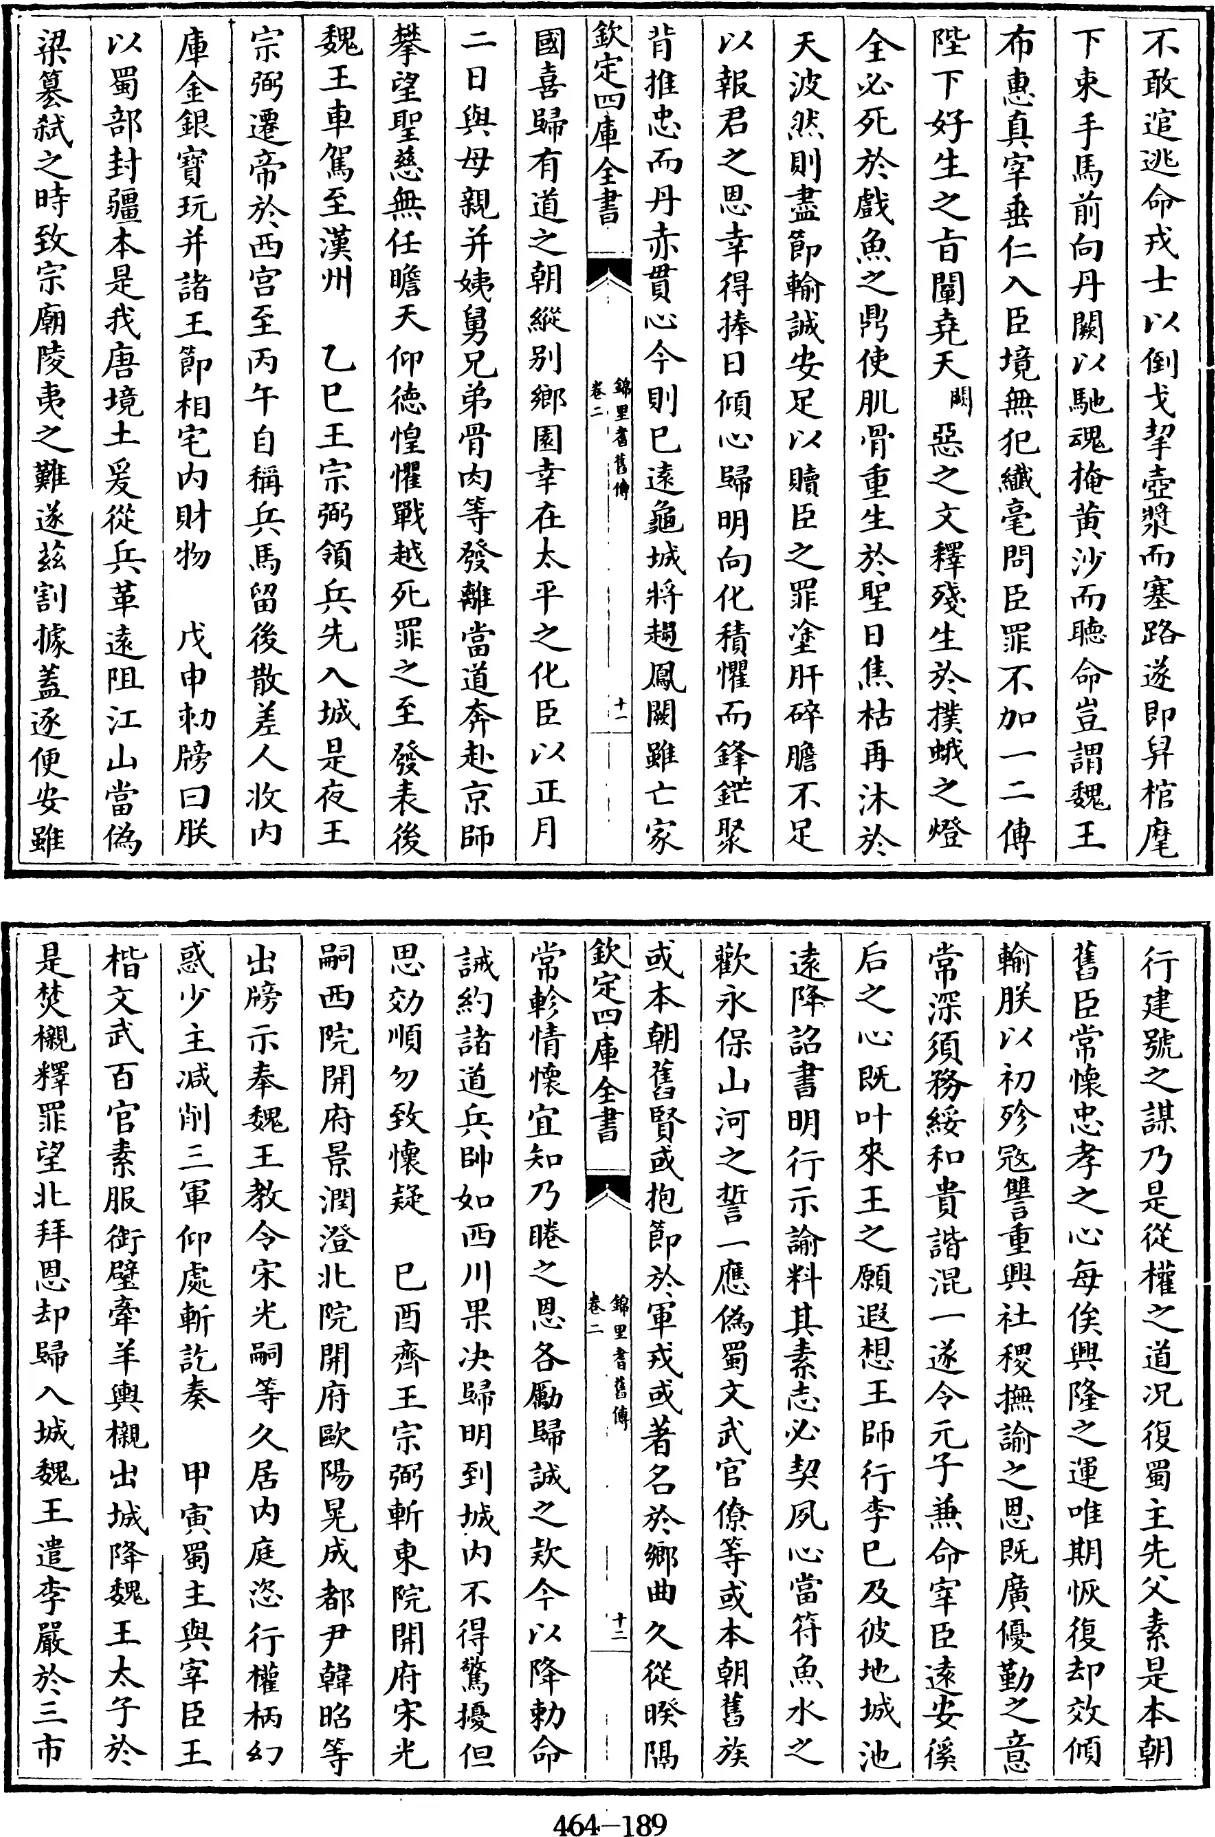 不敢逭逃命戎士以倒戈挈壺漿而塞路遂即舁棺麾
下束手馬前向丹闕以馳魂掩黄沙而聽命豈謂魏王
布惠真宰垂仁入臣境無犯纖毫問臣罪不加一二傳
陛下好生之旨闡堯天闕惡之文釋殘生於撲蛾之燈
全必死於戲魚之鼎使肌骨重生於聖日焦枯再沐於
天波然則盡節輸誠安足以贖臣之罪塗肝碎膽不足
以報君之恩幸得捧日傾心歸明向化積懼而鋒鋩聚
背推忠而丹赤貫心今則已遠龜城將趨鳳闕雖亡家
欽定四庫全書
錦里耆舊傳
卷二
十一
國喜歸有道之朝縱别鄉園幸在太平之化臣以正月
二日與母親并姨舅兄弟骨肉等發離當道奔赴京師
攀望聖慈無任瞻天仰徳惶懼戰越死罪之至發表後
魏王車駕至漢州　乙巳王宗弼領兵先入城是夜王
宗弼遷帝於西宫至丙午自稱兵馬留後散差人收内
庫金銀寶玩并諸王節相宅内財物　戊申勅牓曰朕
以蜀部封疆本是我唐境土爰從兵革遠阻江山當偽
梁篡弑之時致宗廟陵夷之難遂兹割據蓋逐便安雖
行建號之謀乃是從權之道况復蜀主先父素是本朝
舊臣常懐忠孝之心每俟興隆之運唯期恢復却效傾
輸朕以初殄宼讐重興社稷撫諭之恩既廣優勤之意
常深須務綏和貴諧混一遂令元子兼命宰臣遠安徯
后之心既叶來王之願遐想王師行李已及彼地城池
遠降詔書明行示諭料其素志必契夙心當符魚水之
歡永保山河之誓一應偽蜀文武官僚等或本朝舊族
或本朝舊賢或抱節於軍戎或著名於鄉曲久從暌隔
欽定四庫全書
錦里耆舊傳
卷二
十二
常軫情懐宜知乃睠之恩各勵歸誠之欵今以降勅命
誡約諸道兵帥如西川果决歸明到城内不得驚擾但
思効順勿致懐疑　己酉齊王宗弼斬東院開府宋光
嗣西院開府景潤澄北院開府歐陽晃成都尹韓昭等
出牓示奉魏王教令宋光嗣等久居内庭恣行權柄幻
惑少主减削三軍仰處斬訖奏　甲寅蜀主與宰臣王
楷文武百官素服銜璧牽羊輿櫬出城降魏王太子於
是焚櫬釋罪望北拜恩却歸入城魏王遣李嚴於三市
464-189